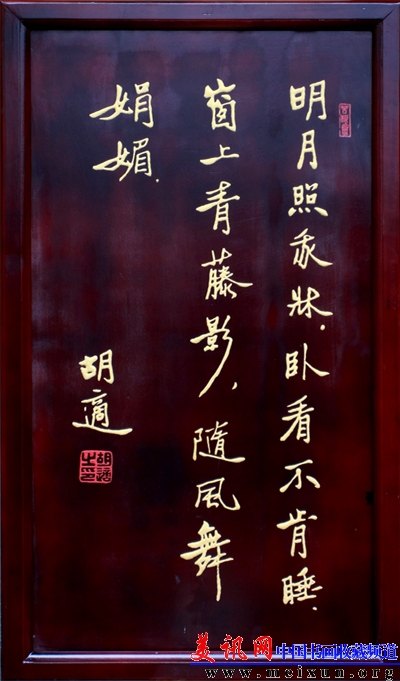 明月照我牀．卧看不肯睡．
窗上青藤影．隨風舞
娟媚．
胡適
胡適之印
美讯网
中国书画收藏频道
www.meixun.org